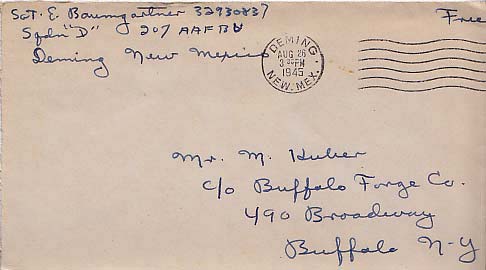 Sgt. E. Baumgartner 32930837
Sqdn "D" 207 AAFBU
Deming New Mexico
Free
DEMING
AUG 26
3 30 PM
1945
NEW. MEX.
Mr. M. Huber
c/o Buffalo Forge Co.
490 Broadway
Buffalo N-Y